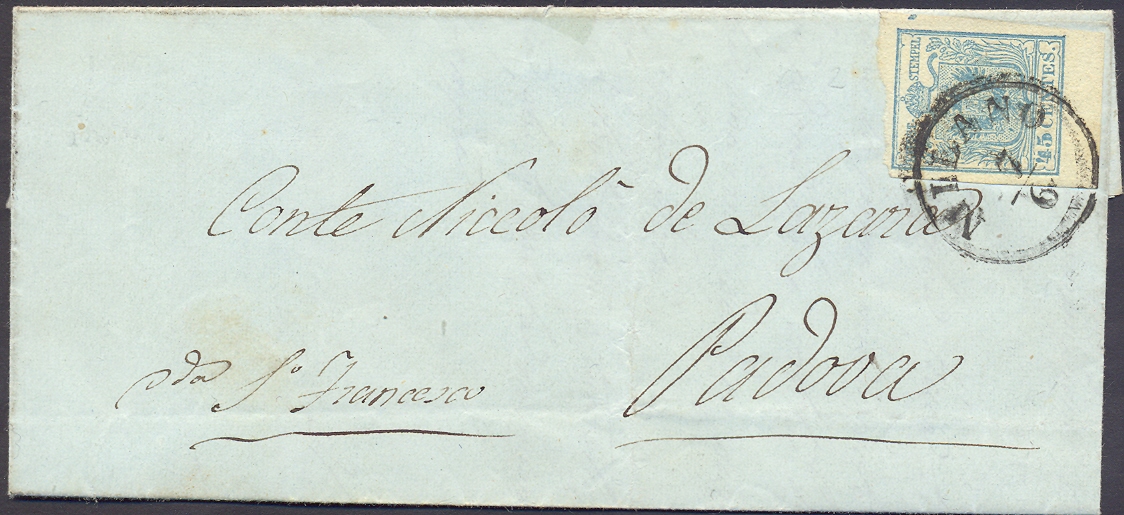 STEMPEL
45 CENTES.
MILANO
7
6
Conte Niccolò de Lazara
Padova
S.º Francesco